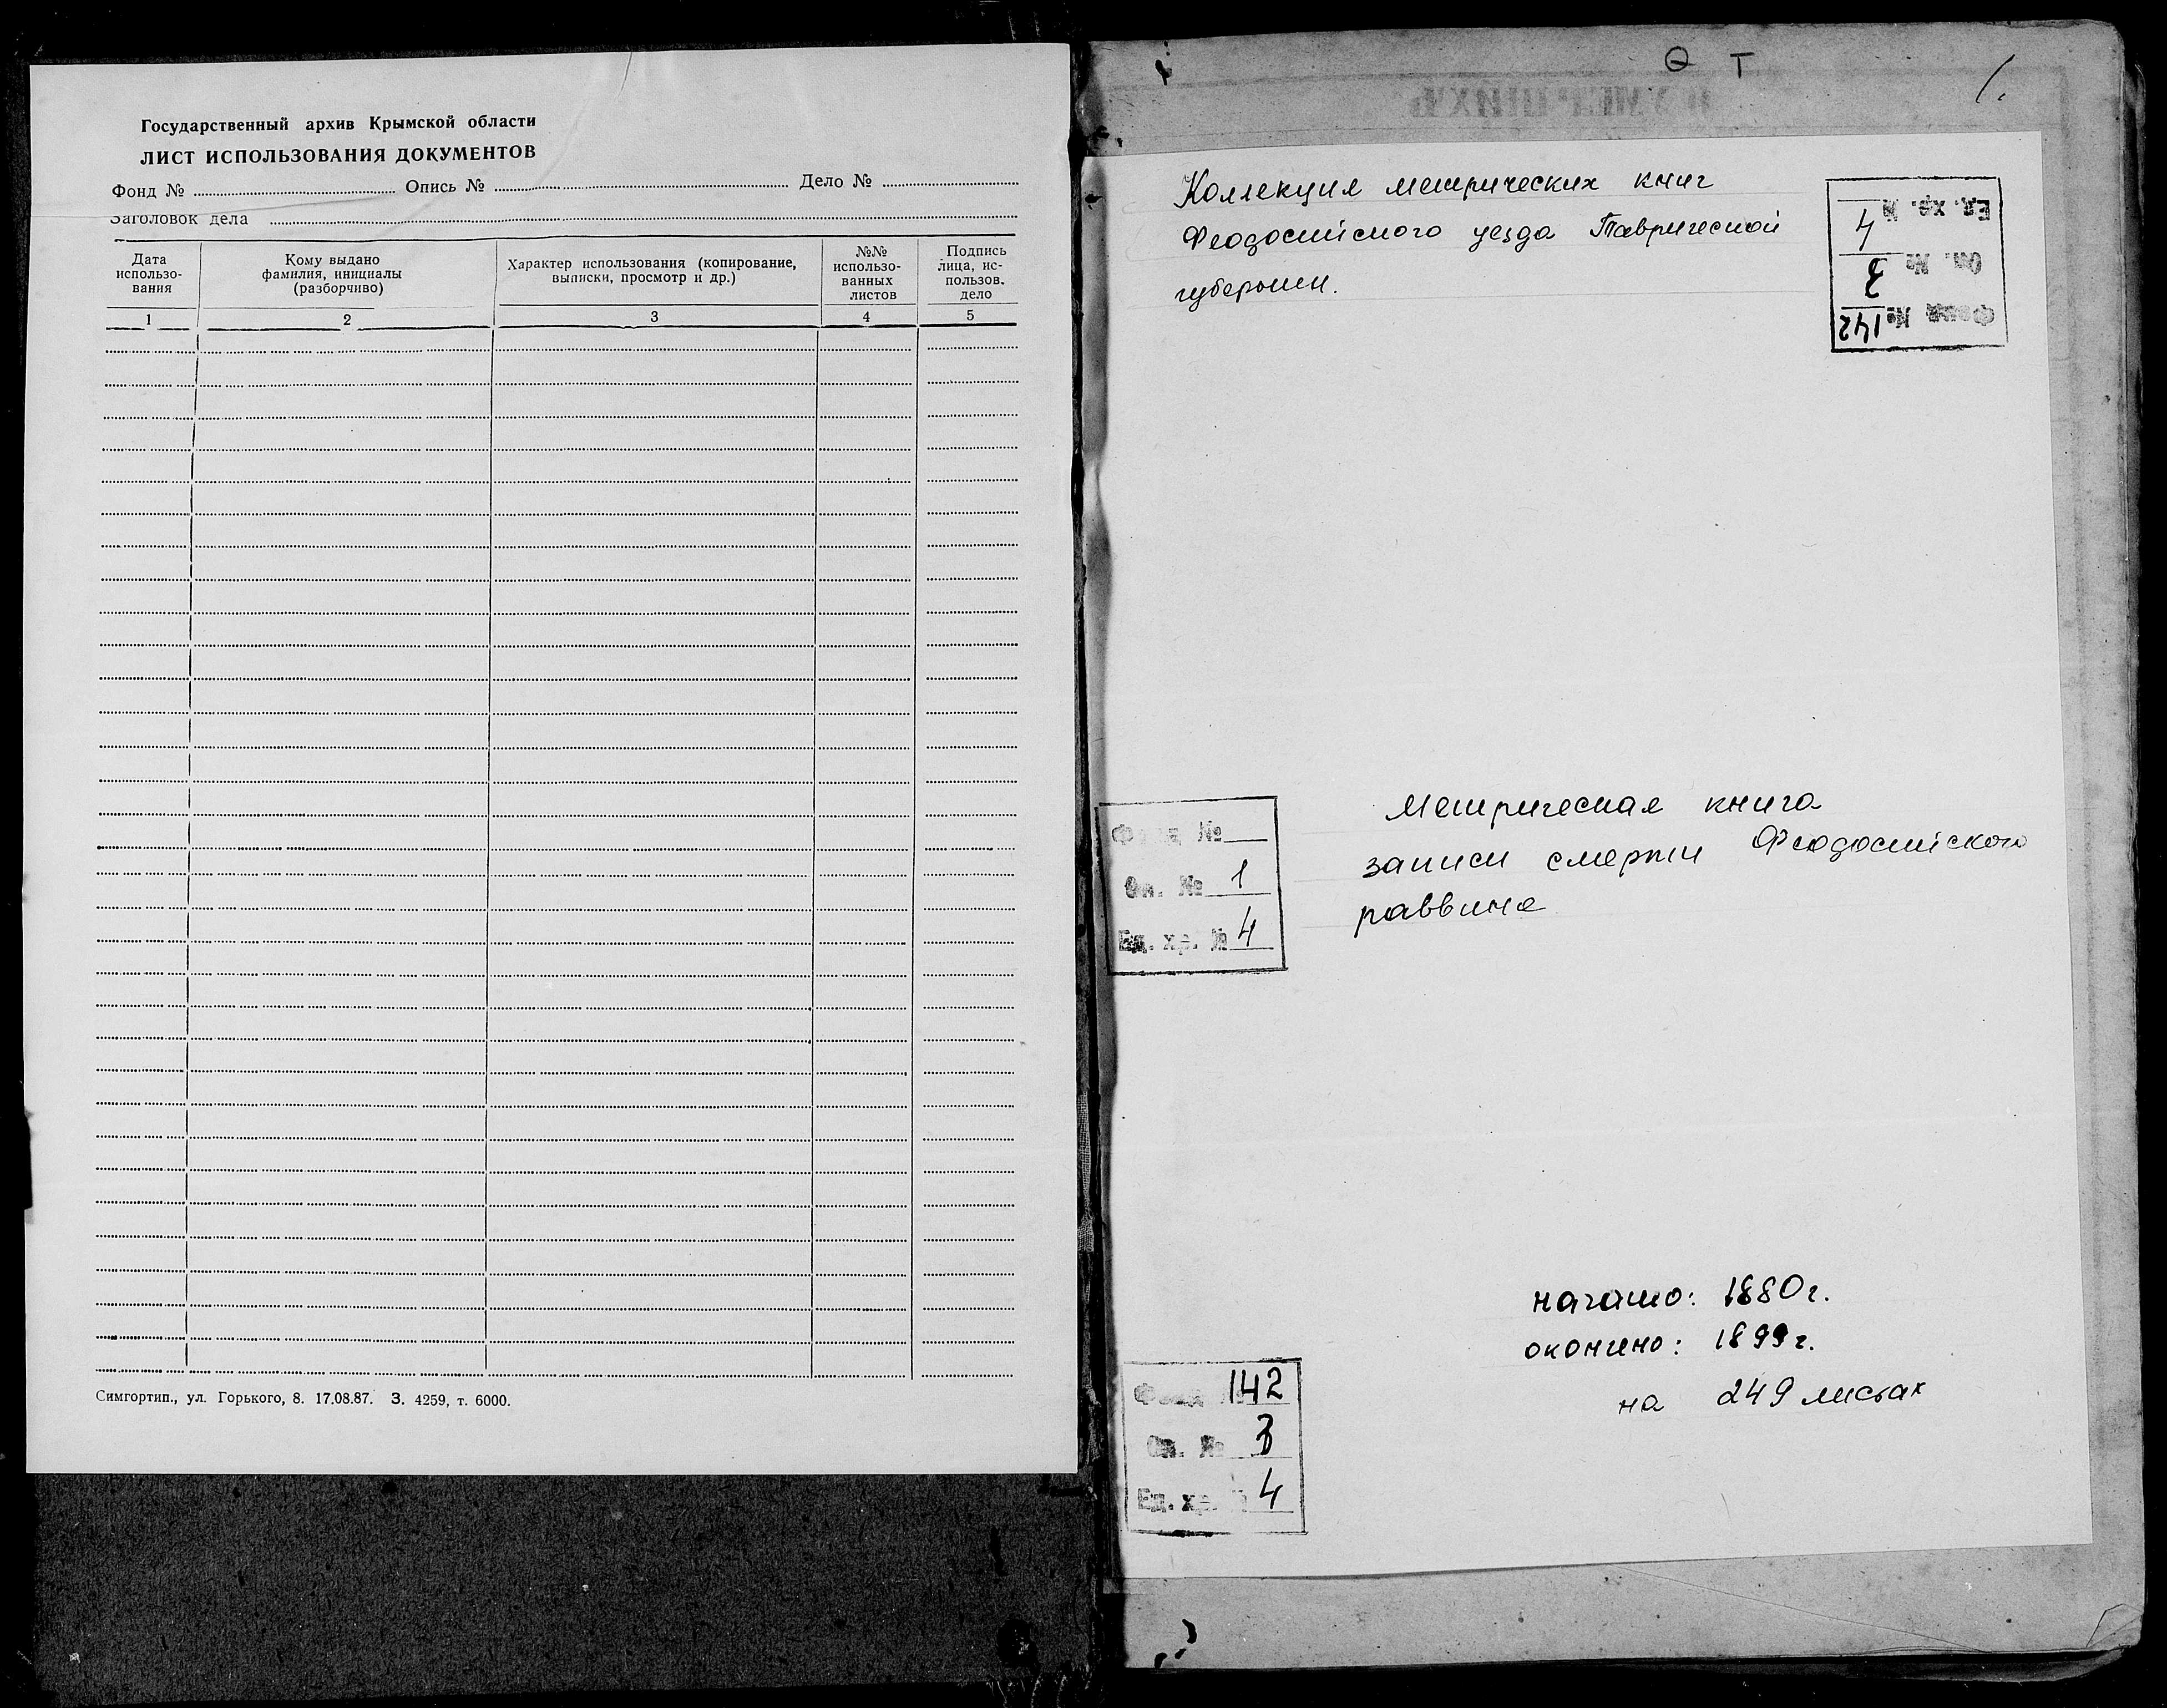 Государственный архив Крымской области
ЛИСТ ИСПОЛЬЗОВАНИЯ ДОКУМЕНТОВ
Фонд № Опись № Дело №
Заголовок дела
Дата использо-вания
Кому выдано фамилия, инициалы (разборчиво)
Характер использования (копирование, выписки, просмотр и др.)
№№ использо-ванных листов
Подпись лица, ис-пользов. дело
1 2 3 4 5
Симгортип., ул. Горького, 8. 17.08.87. З. 4259, т. 6000.
Θ Т
1.
Коллекция метрических книг
Феодосийского уезда Таврической
губернии.
Ед. хр. № 4
Оп. № 3
Фонд № 142
Метрическая книга
записи смерти Феодосийского
раввина
Фонд №
Оп. № 1
Ед. хр. № 4
начато: 1880 г.
окончено: 1899 г.
на 249 листах
Фонд № 142
Оп. № 3
Ед. хр. № 4